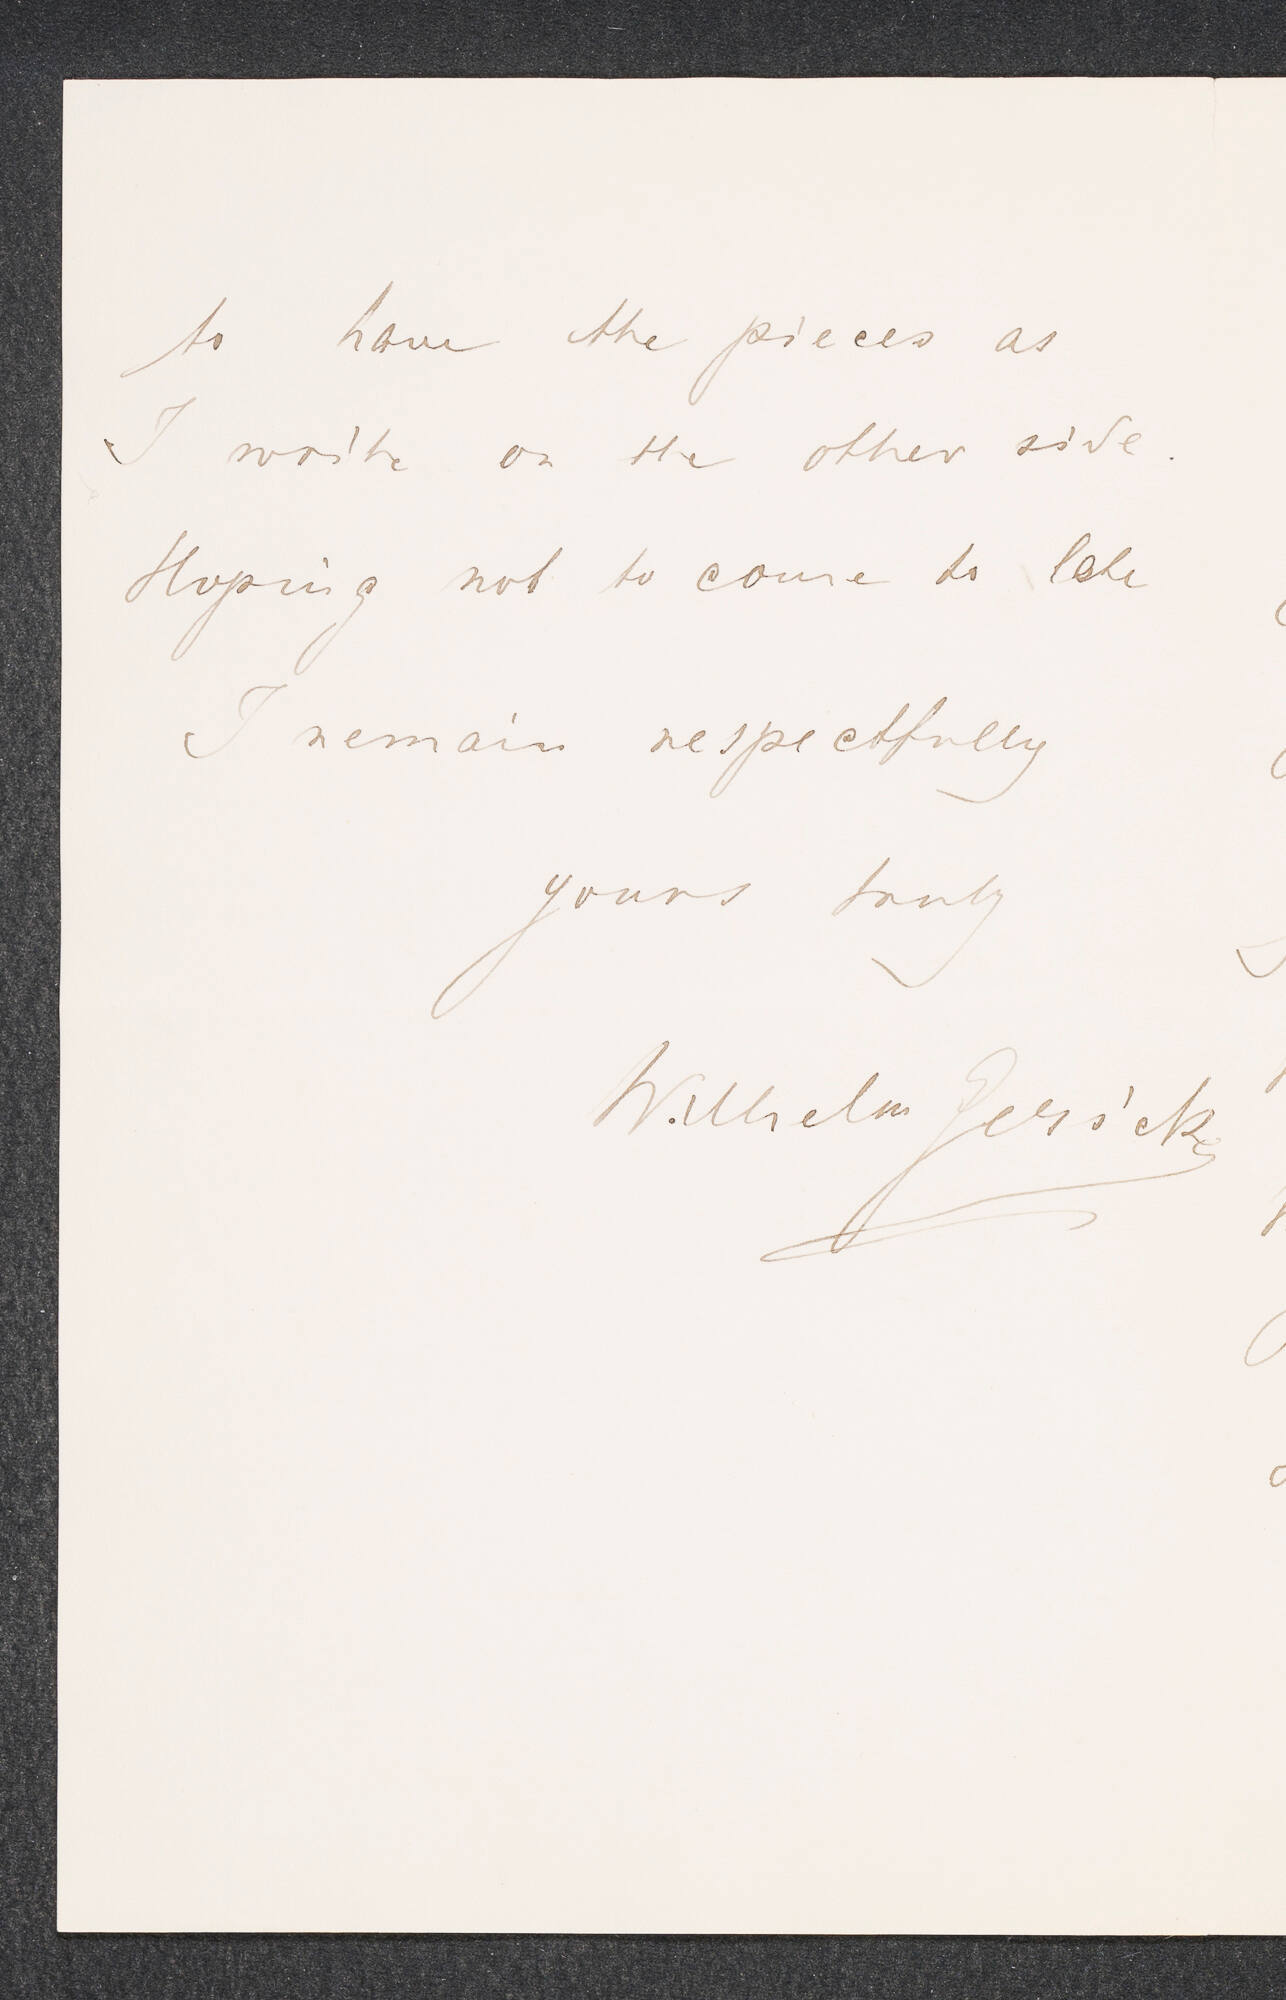 to have the pieces as
I write on the other side.
Hoping not to come to late
I remain respectfully
yours truly
Wilhelm Gericke